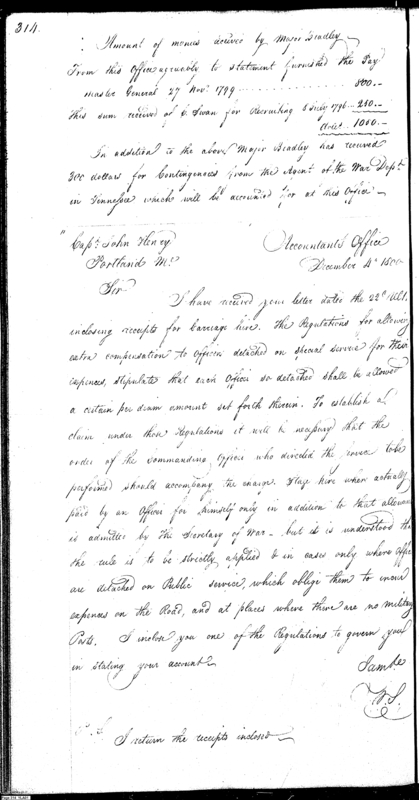 314.
Amount of monies received by Major Bradley
From this Office agreeably to statement furnished the Pay
master General 27 Novr 1799 .......... 800.-
This sum received of C. Swan for Recruiting 8 July 1796 .. 260.-
dolrs 1060.-
In addition to the above Major Bradley has received
300 dollars for Contingencies from the Agent of the War Dept
in Tennessee which will be accounted for at this Office
Capt. John Henry
Portland Me.
Accountants Office
December 4th 1800
Sir
I have received your letter dated the 22d Ult.
inclosing receipts for Carriage hire. The Regulations for allowing
extra compensation to Officers detached on special service for their
expences, stipulate that every Officer so detached shall be allowed
a certain per diem amount set forth therein. To establish a
claim under these Regulations it will be necessary that the
order of the commanding Officer who directed the service to be
performed should accompany the charge. Stage hire when actually
paid by an Officer for himself only in addition to that allowance
is admitted by the Secretary of War - but it is understood that
the rule is to be strictly applied & in cases only where Officers
are detached on Public service, which oblige them to incur
expences on the Road, and at places where there are no military
Posts. I inclose you one of the Regulations to govern you
in stating your account
I am &c
W. S.
P.S.
I return the receipts inclosed